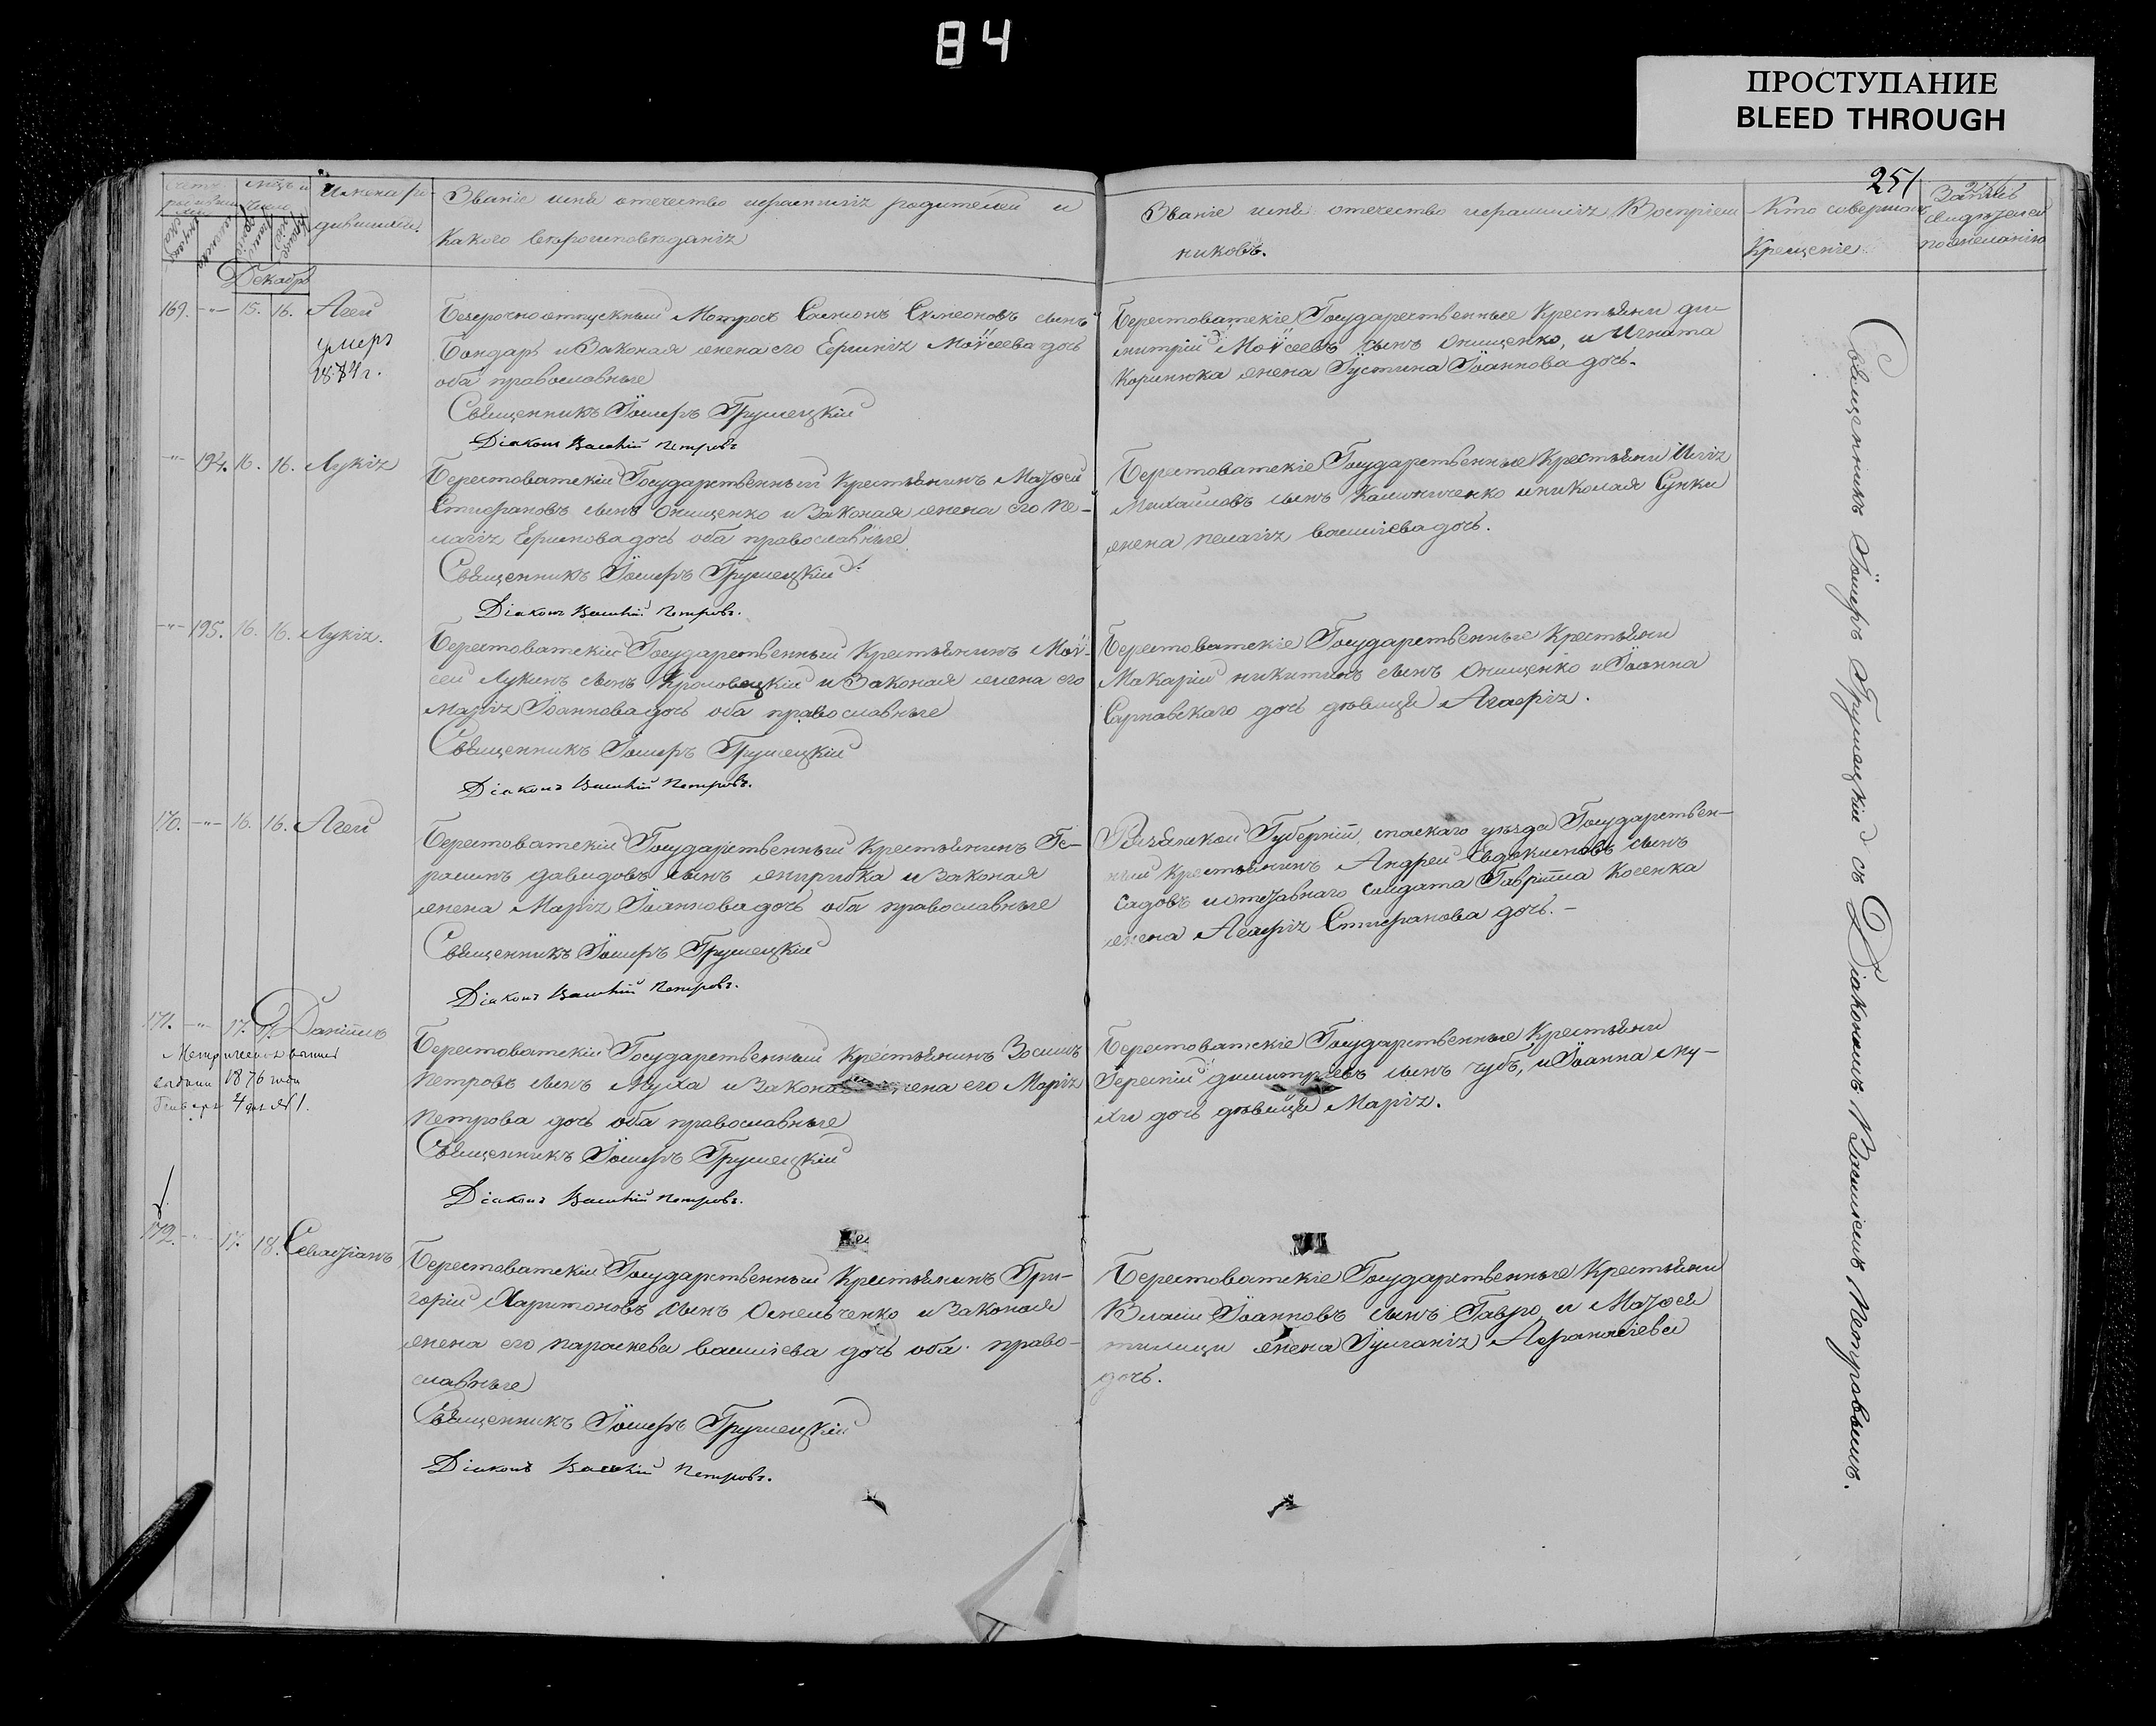 84
ПРОСТУПАНИЕ
BLEED THROUGH
251
Имена ро-
дившихся.
Званіе имя отечество ифамилія родителей и
какого вѣроисповѣданія
Званіе имя отечество ифамилія Воспріем
никовъ.
Кто совершалъ
Крещеніе
Декабрь
169. -"- 15. 16. Агей
умеръ
Безсрочноотпускный Матросъ Самсонъ Симеоновъ сынъ
Бондарь и Законая жена его Ефимія Моѵсеева дочь
оба православные
Священникъ Іосифъ Грушецкій
Діаконъ Василій Петровъ
Берестоватскіе Государственные Крестьяни ди-
митрій Моѵсеевъ сынъ Онищенко, и Игната
жена Іустина Іоаннова дочь.
-"- 194. 16. 16. Лукія
Берестоватскій Государственный Крестьянинъ Маѳей
Стефановъ сынъ Онищенко и Законая жена его Пе-
лагія Ефимова дочь оба православные
Священникъ Іосифъ Грушецкій
Діаконъ Василій Петровъ.
Берестоватскіе Государственные Крестьяни Илія
Михаиловъ сынъ Калиниченко и николая Сунки
жена пелагія василіева дочь.
-"- 195. 16. 16. Лукія.
Берестоватскій Государственный Крестьянинъ Моѵ-
сей Лукинъ сынъ Кроловецкій и Законая жена его
Марія Іоаннова дочь оба православные
Священникъ Іосифъ Грушецкій
Діаконъ Василій Петровъ.
Берестоватскіе Государственные Крестьяни
Макарій никитинъ сынъ Онищенко и Іоанна
Сарнавскаго дочь дѣвица Агафія.
170. -"- 16. 16. Агей
Берестоватскій Государственный Крестьянинъ Ге-
расимъ давидовъ сынъ и Законая
жена Марія Іоаннова дочь оба православные
Священникъ Іосифъ Грушецкій
Діаконъ Василій Петровъ.
Губерніи, спаскаго уѣзда Государствен-
ный Крестьянинъ Андрей Евдокимовъ сынъ
садовъ и отставнаго солдата Гавріила Косенка
жена Агафія Стефанова дочь.-
171. -"- 17. 17. Даніилъ
1876 года
Берестоватскій Государственный Крестьянинъ Зосимъ
Петровъ сынъ Муха и Законая жена его Марія
Петрова дочь оба православные
Священникъ Іосифъ Грушецкій
Діаконъ Василій Петровъ.
Берестоватскіе Государственные Крестьяни
Терентій димитріевъ сынъ чубъ, и Іоанна му-
хи дочь дѣвица Марія.
172. -"- 17. 18. Севастіанъ
Берестоватскій Государственный Крестьянинъ Гри-
горій Харитоновъ сынъ Омельченко и Законая
жена его параскева василіева дочь оба право-
славные
Священникъ Іосифъ Грушецкій
Діаконъ Василій Петровъ.
Берестоватскіе Государственные Крестьяни
Власій Іоанновъ сынъ Гавро, и Маѳея
жена Іуліанія Афанасіева
дочь.
Священникъ Іосифъ Грушецкій съ Діакономъ Василіемъ Петровымъ.